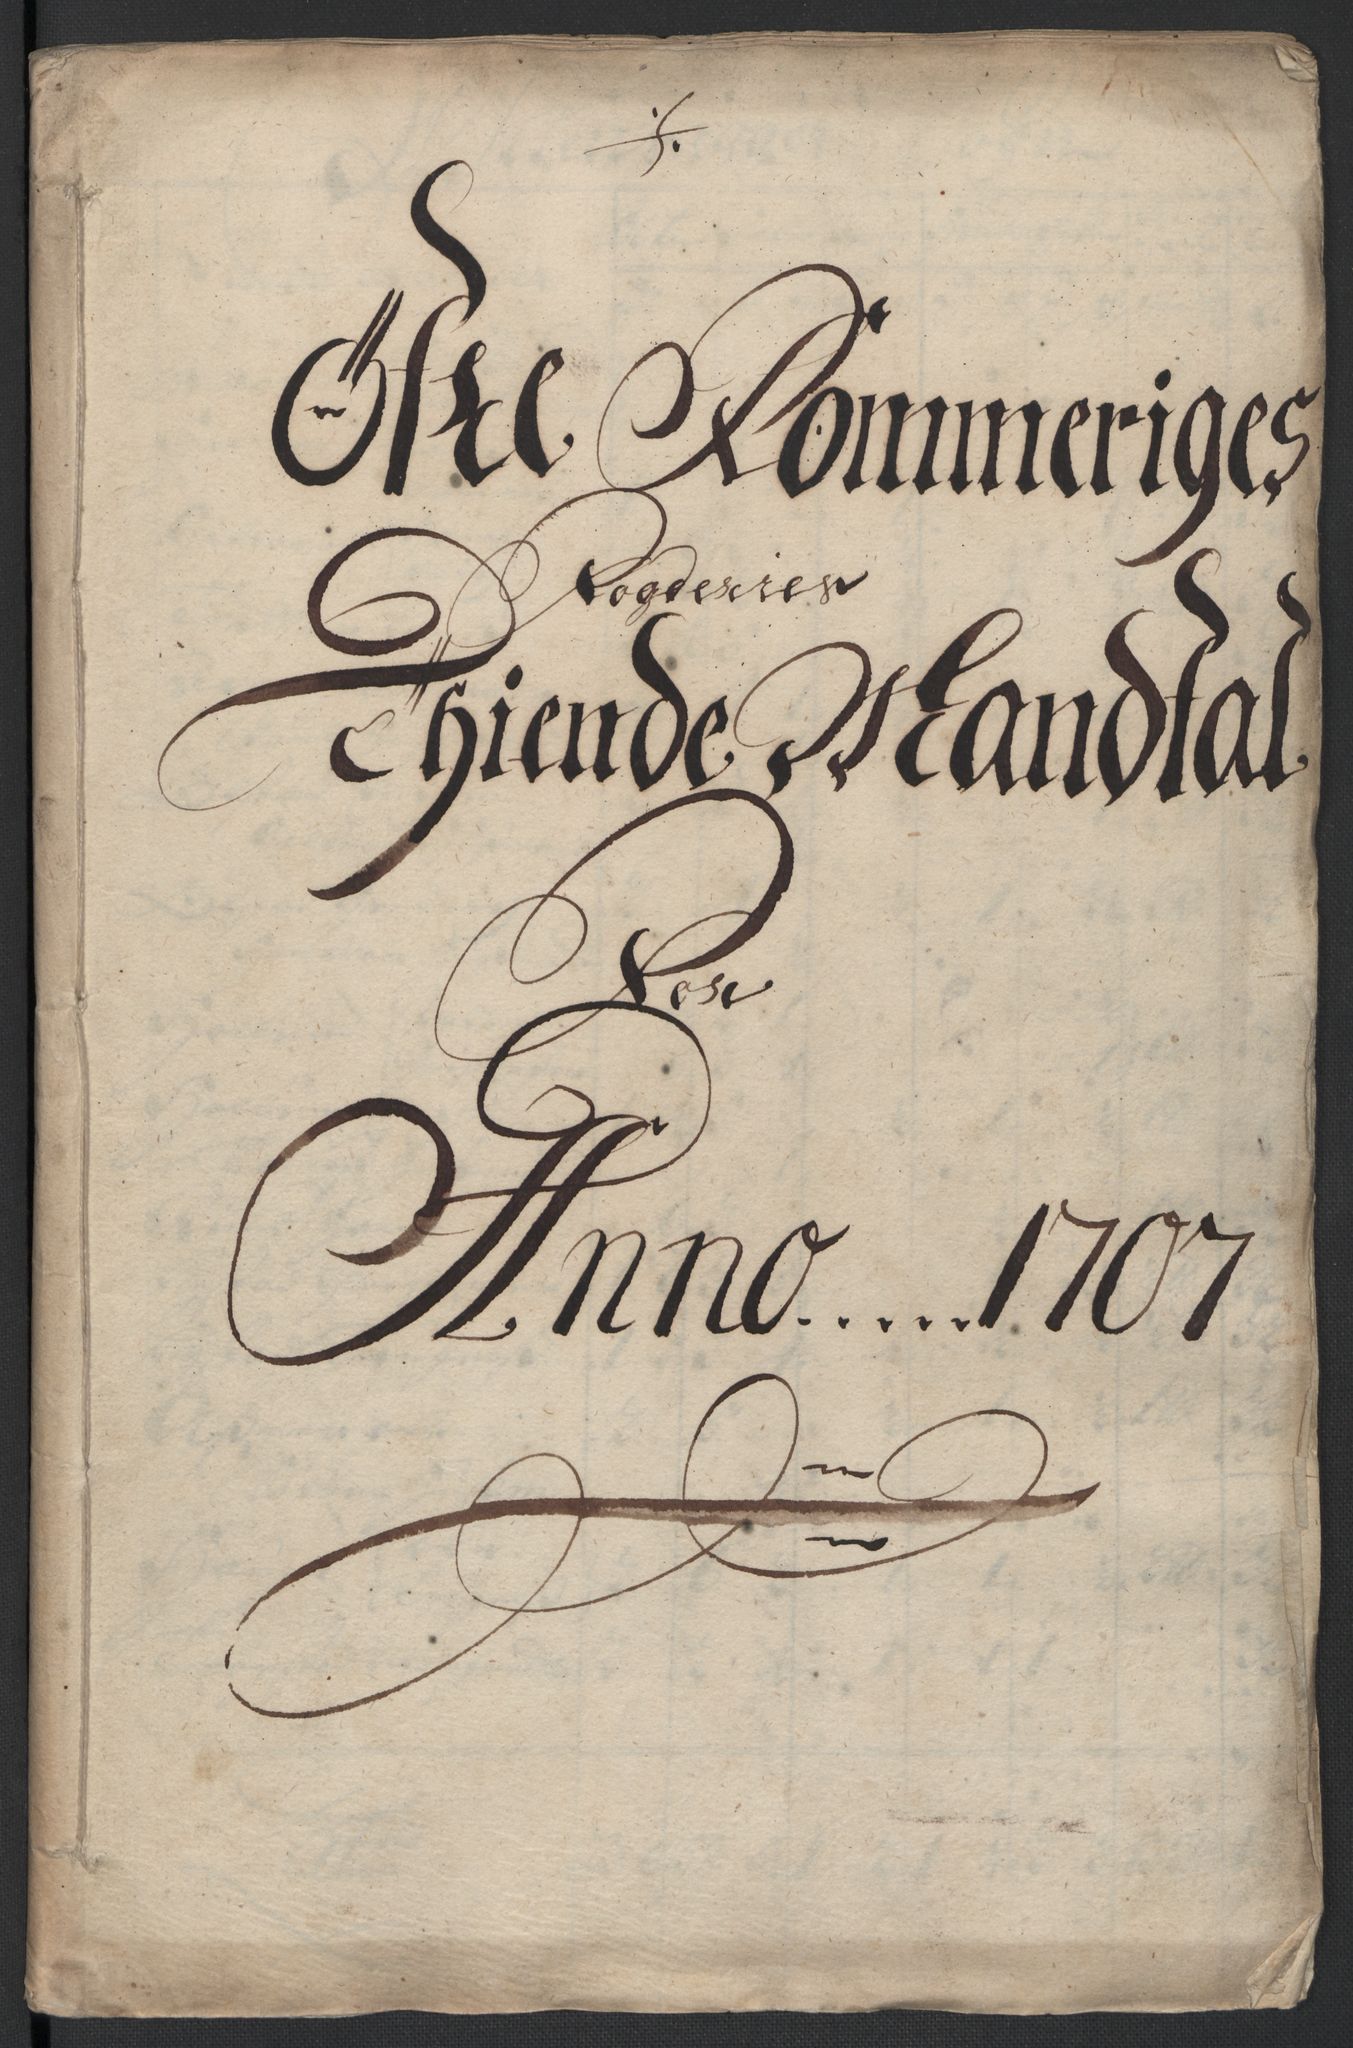 ·/.
Øfre Rommeriges
Fogderies
Thiende Mandtal
For
Anno ..... 1707